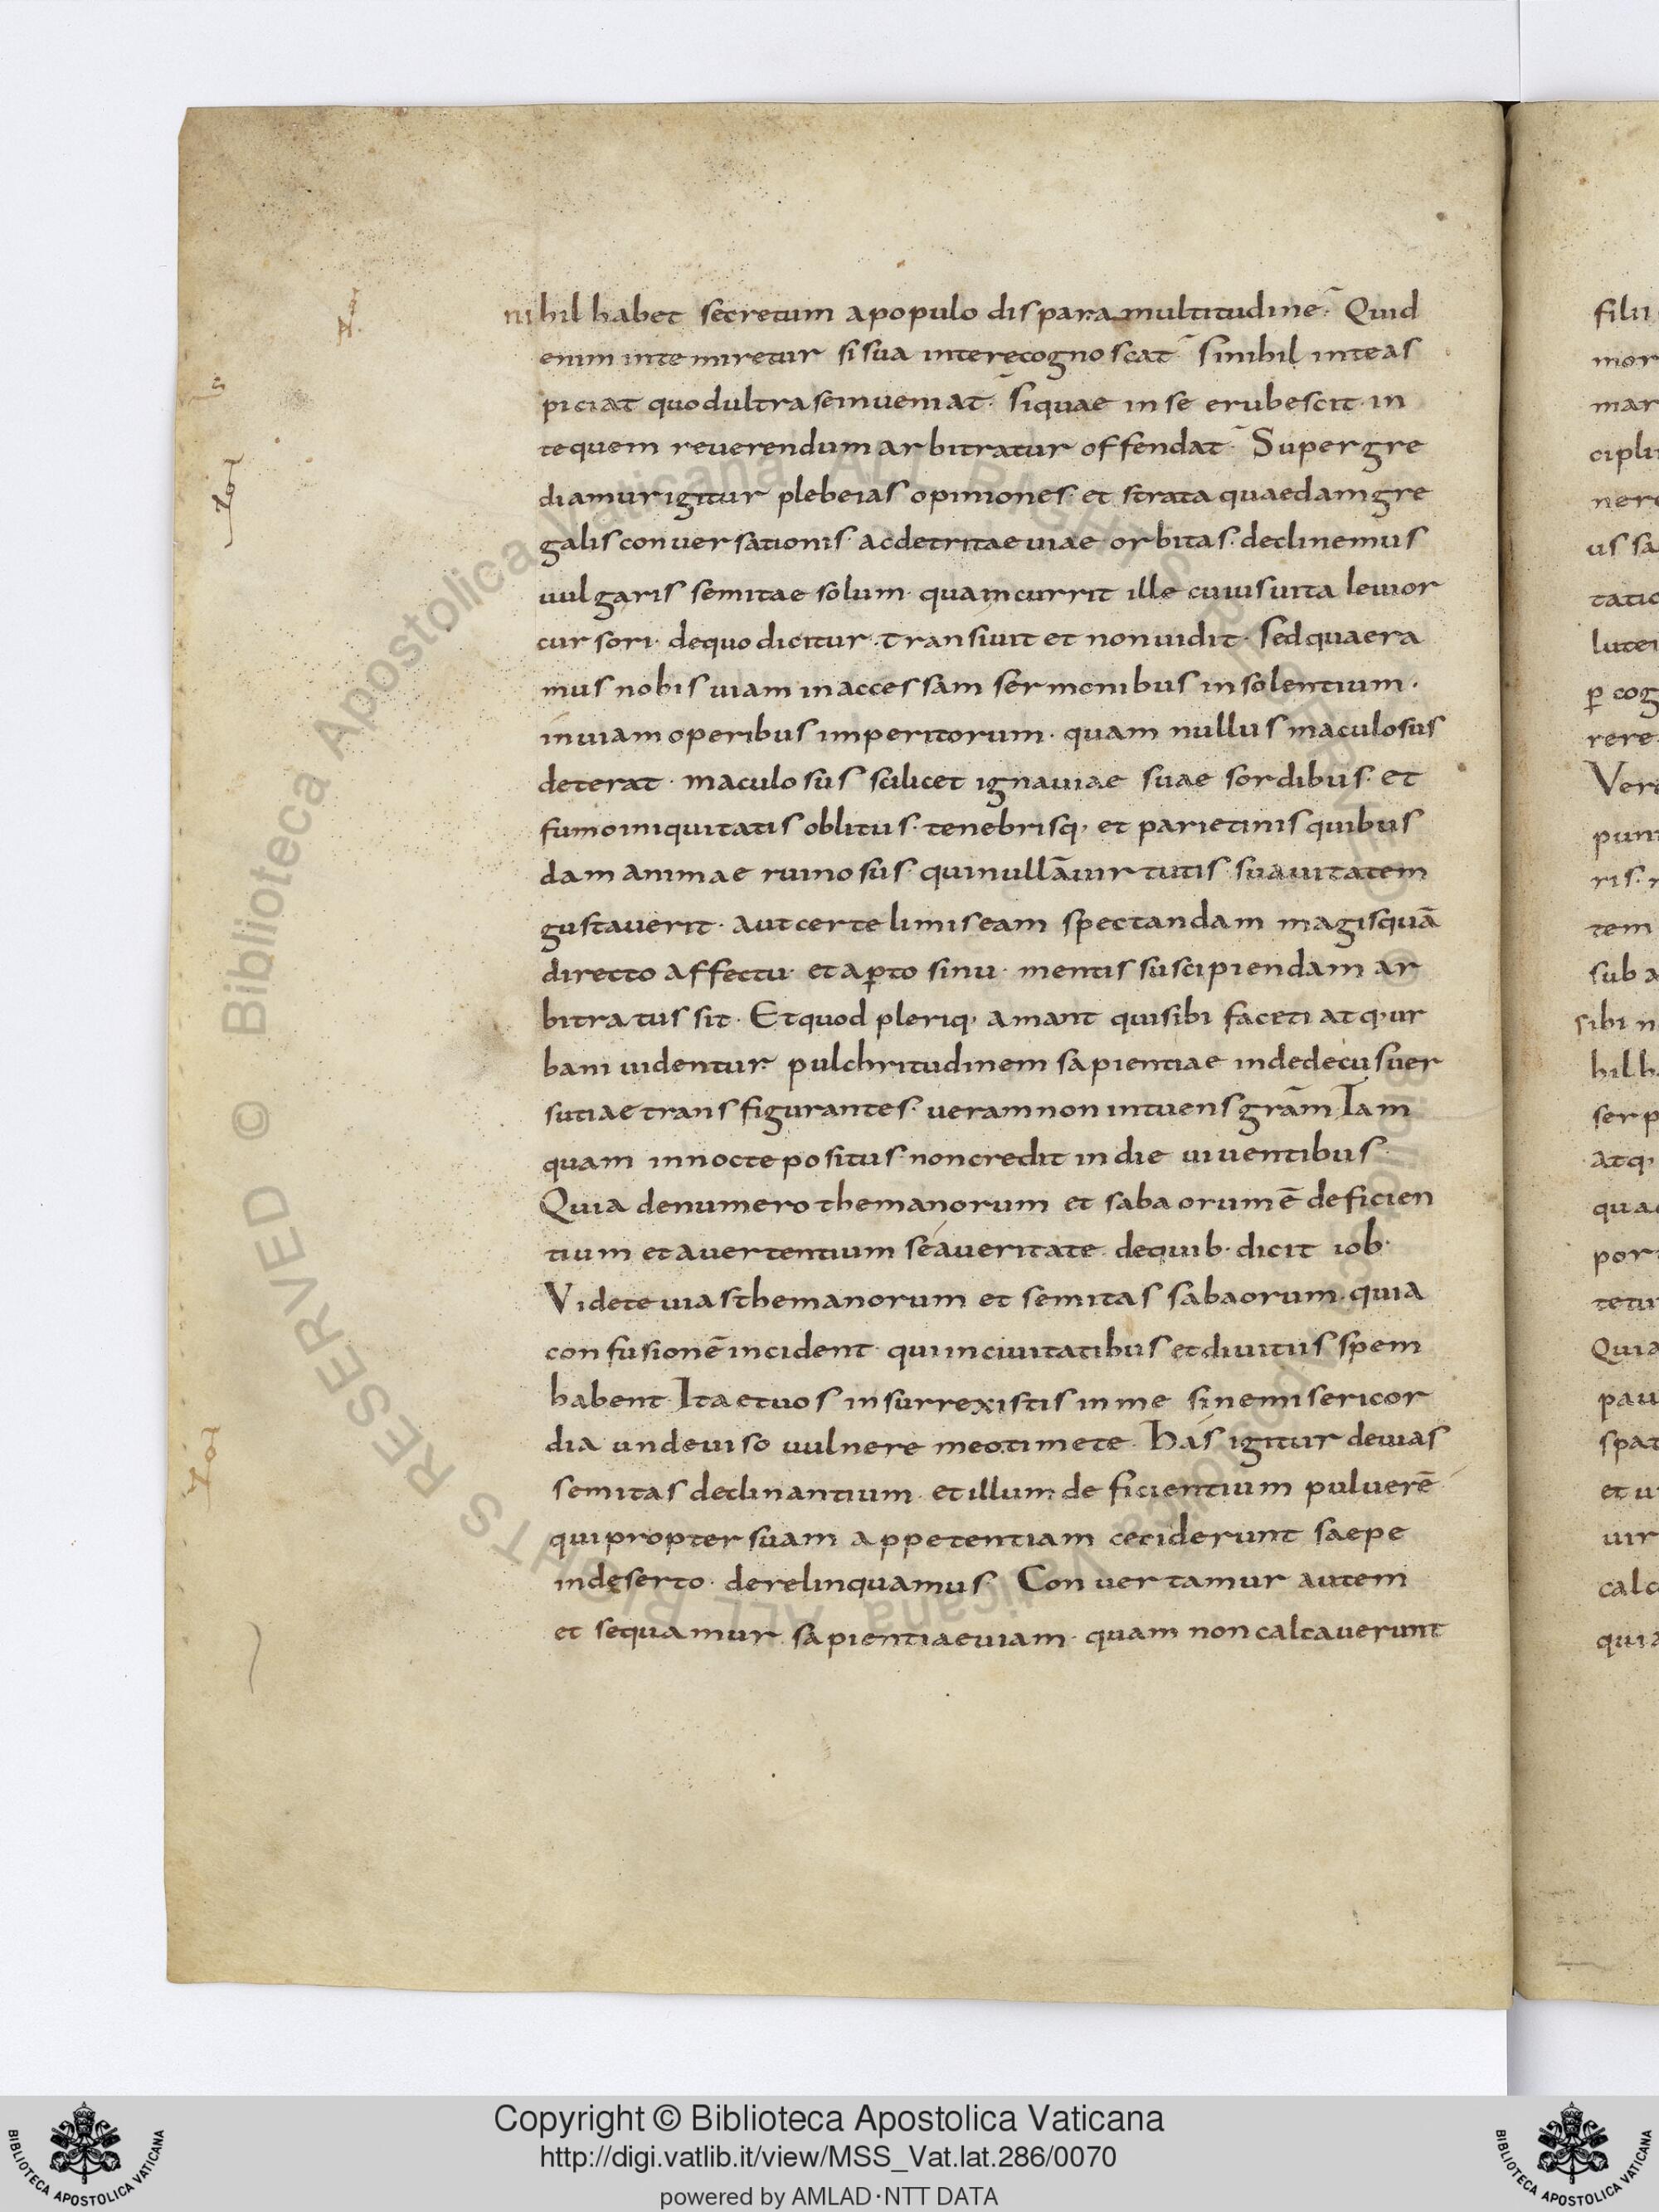 nihil habet secretum a populo dispar a multitudine. Quid
enim in te miretur si sua in te recognoscat. si nihil in te as
piciat quod ultra se inveniat. si quae in se erubescit. in
te quem reverendum arbitratur offendat. Supergre
diamur igitur plebeias opiniones. et strata quaedam gre
galis conversationis. ac detritae viae orbitas. declinemus
vulgaris semitae solum. quam currit ille cuius vita levior
cursori. de quo dicitur. transivit et non vidit. Sed quaera
mus nobis viam inaccessam sermonibus insolentium.
inviam operibus imperitorum. quam nullus maculosus
deterat. maculosus scilicet ignaviae suae sordibus. et
fumo iniquitatis oblitus. tenebrisq, et parietinis quibus
dam animae ruinosus. qui nullā virtutis suavitatem
gustaverit. aut certe limis eam spectandam magis quā
directo affectu. et aꝑto sinu. mentis suscipiendam ar
bitratus sit. Et quod pleriq, amant qui sibi faceti atq, ur
bani videntur. pulchritudinem sapientiae in dedecus ver
sutiae transfigurantes. veram non intuens grām. Iam
quam in nocte positus. non credit in die viventibus.
Quia de numero themanorum et sabaorum ē deficien
tium et avertentium se a veritate. de quib. dicit iob.
Videte vias themanorum et semitas sabaorum. quia
confusionē incident. qui in civitatibus et divitiis spem
habent. Ita et vos insurrexistis in me sine misericor
dia unde viso vulnere meo. timete. Has igitur devias
semitas declinantium. et illum deficientium pulverē
qui propter suam appetentiam ceciderunt saepe
in deserto. derelinquamus. Convertamur autem
et sequamur sapientiae viam. quam non calcaverunt
filii
mar
nere
us sa
ꝑ cog
rere
Vere
tem
sub a
sibi n
hil h
serp
atq,
Quia
pau
spat
et u
vir
calc
quia
© Biblioteca Apostolica Vaticana ALL RIGHTS RESERVED
Copyright © Biblioteca Apostolica Vaticana
http://digi.vatlib.it/view/MSS_Vat.lat.286/0070
powered by AMLAD·NTT DATA
BIBLIOTECA APOSTOLICA VATICANA
BIBLIOTECA APOSTOLICA VATICANA